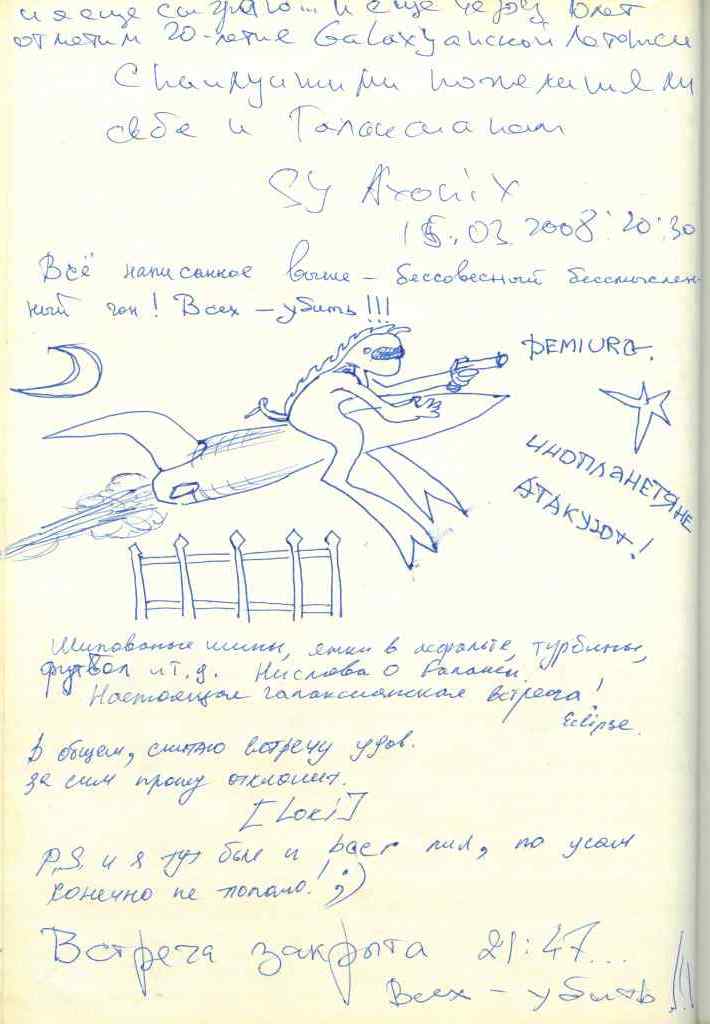 и я еще сыграю... и еще через 10 лет
отметим 20-летие Galaxyанской
С наилучшими пожеланиями
себе и Галаксианам
SY
15.03.2008 20:30
Всё написанное выше – бессовестный бессмыслен-
ный гон! Всех – убить!!!
DEMIURG.
ИНОПЛАНЕТЯНЕ
АТАКУЮТ!
Шипованые шины, ямки в асфальте, турбины,
футбол и т.д. Ни слова о Галакси.
Настоящая галаксианская встреча!
Eclipse.
В общем, считаю встречу удов.
за сим прошу
[Loki]
P.S. и я тут был и пил, по усам
конечно не попало! ;)
Встреча закрыта 21:47...
Всех – убить!!!